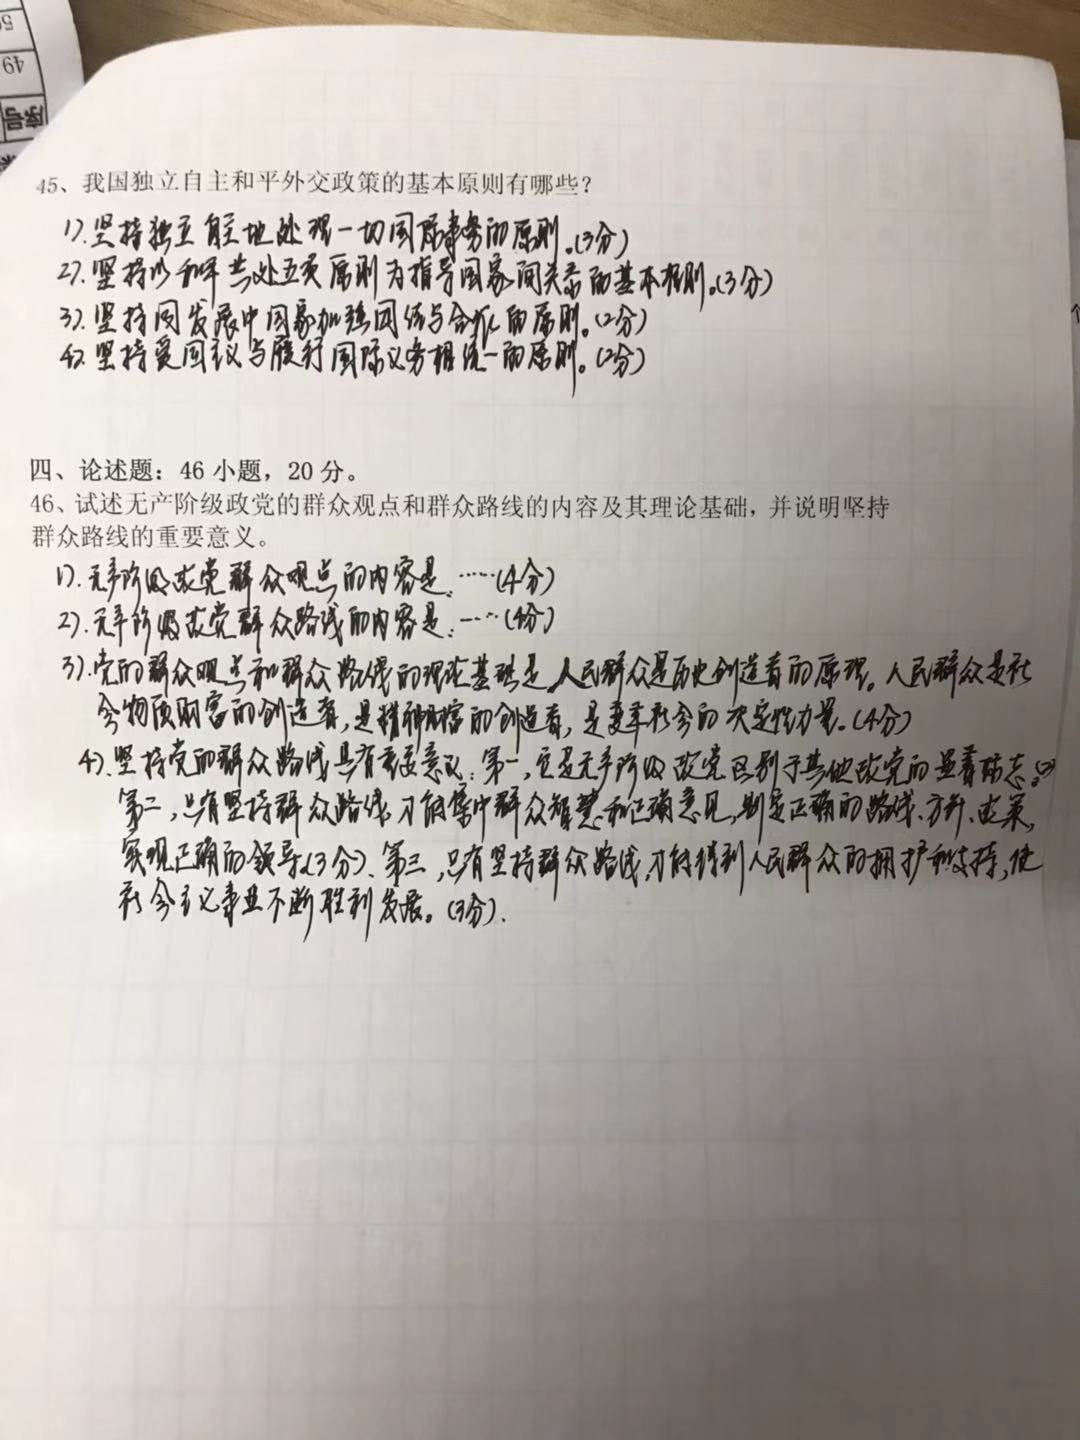 50
49
序号
45、我国独立自主和平外交政策的基本原则有哪些？
1). 坚持独立自主地处理一切国际事务的原则。(3分)
2). 坚持以和平共处五项原则为指导国家间关系的基本准则。(3分)
3). 坚持同发展中国家加强团结与合作的原则。(2分)
4). 坚持爱国主义与履行国际义务相统一的原则。(2分)
四、论述题：46 小题，20 分。
46、试述无产阶级政党的群众观点和群众路线的内容及其理论基础，并说明坚持
群众路线的重要意义。
1). 无产阶级政党群众观点的内容是：……(4分)
2). 无产阶级政党群众路线的内容是：……(4分)
3). 党的群众观点和群众路线的理论基础是人民群众是历史创造者的原理。人民群众是社
会物质财富的创造者，是精神财富的创造者，是变革社会的决定性力量。(4分)
4). 坚持党的群众路线具有重要意义：第一，它是无产阶级政党区别于其他政党的显著标志。(2)
第二，只有坚持群众路线，才能集中群众智慧和正确意见，制定正确的路线、方针、政策，
实现正确的领导(3分)、第三，只有坚持群众路线，才能得到人民群众的拥护和支持，使
社会主义事业不断胜利发展。(3分).